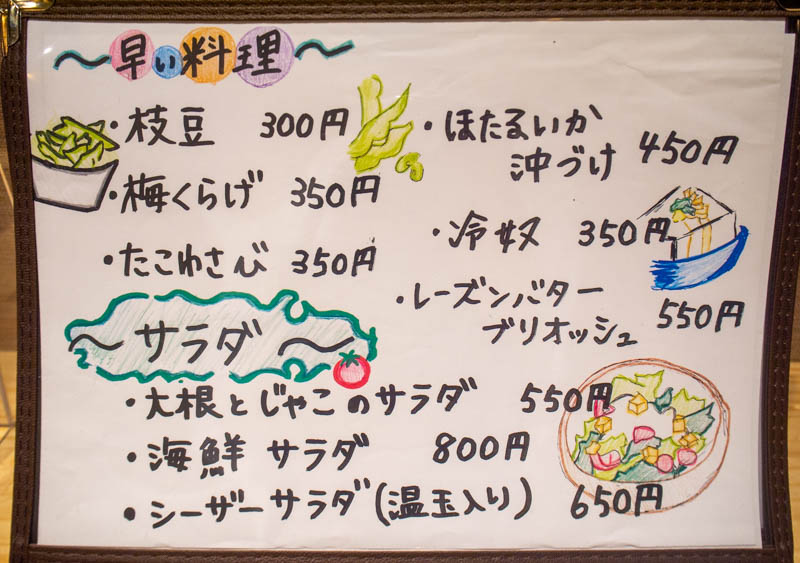 〜早い料理〜
・枝豆 300円
・梅くらげ 350円
・たこわさび 350円
・ほたるいか
沖づけ 450円
・冷奴 350円
・レーズンバター
ブリオッシュ 550円
〜サラダ〜
・大根とじゃこのサラダ 550円
・海鮮サラダ 800円
・シーザーサラダ(温玉入り) 650円